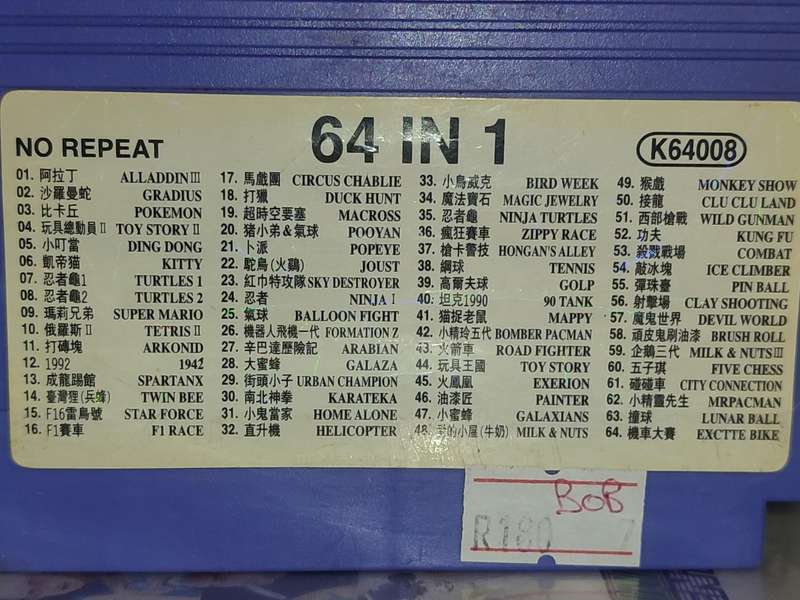 NO REPEAT
64 IN 1
K64008
01. 阿拉丁 ALLADDIN III
02. 沙羅曼蛇 GRADIUS
03. 比卡丘 POKEMON
04. 玩具總動員 II TOY STORY II
05. 小叮當 DING DONG
06. 凱帝猫 KITTY
07. 忍者龜1 TURTLES 1
08. 忍者龜2 TURTLES 2
09. 瑪莉兄弟 SUPER MARIO
10. 俄羅斯II TETRIS II
11. 打磚塊 ARKONID
12. 1992 1942
13. 成龍踢館 SPARTANX
14. 臺灣狸(兵蜂) TWIN BEE
15. F16雷鳥號 STAR FORCE
16. F1賽車 F1 RACE
17. 馬戲團 CIRCUS CHABLIE
18. 打獵 DUCK HUNT
19. 超時空要塞 MACROSS
20. 猪小弟&氣球 POOYAN
21. 卜派 POPEYE
22. 駝鳥(火鷄) JOUST
23. 紅巾特攻隊 SKY DESTROYER
24. 忍者 NINJA I
25. 氣球 BALLOON FIGHT
26. 機器人飛機一代 FORMATION Z
27. 辛巴達歷險記 ARABIAN
28. 大蜜蜂 GALAZA
29. 街頭小子 URBAN CHAMPION
30. 南北神拳 KARATEKA
31. 小鬼當家 HOME ALONE
32. 直升機 HELICOPTER
33. 小鳥威克 BIRD WEEK
34. 魔法寶石 MAGIC JEWELRY
35. 忍者龜 NINJA TURTLES
36. 瘋狂賽車 ZIPPY RACE
37. 槍卡警技 HONGAN'S ALLEY
38. 網球 TENNIS
39. 高爾夫球 GOLP
40. 坦克1990 90 TANK
41. 猫捉老鼠 MAPPY
42. 小精玲五代 BOMBER PACMAN
43. 火箭車 ROAD FIGHTER
44. 玩具王國 TOY STORY
45. 火鳳凰 EXERION
46. 油漆匠 PAINTER
47. 小蜜蜂 GALAXIANS
48. 的小屋(牛奶) MILK & NUTS
49. 猴戲 MONKEY SHOW
50. 接龍 CLU CLU LAND
51. 西部槍戰 WILD GUNMAN
52. 功夫 KUNG FU
53. 殺戮戰場 COMBAT
54. 敲冰塊 ICE CLIMBER
55. 彈珠臺 PIN BALL
56. 射擊場 CLAY SHOOTING
57. 魔鬼世界 DEVIL WORLD
58. 頑皮鬼刷油漆 BRUSH ROLL
59. 企鵝三代 MILK & NUTS III
60. 五子琪 FIVE CHESS
61. 碰碰車 CITY CONNECTION
62. 小精靈先生 MRPACMAN
63. 撞球 LUNAR BALL
64. 機車大賽 EXCTTE BIKE
BOB
R180 7